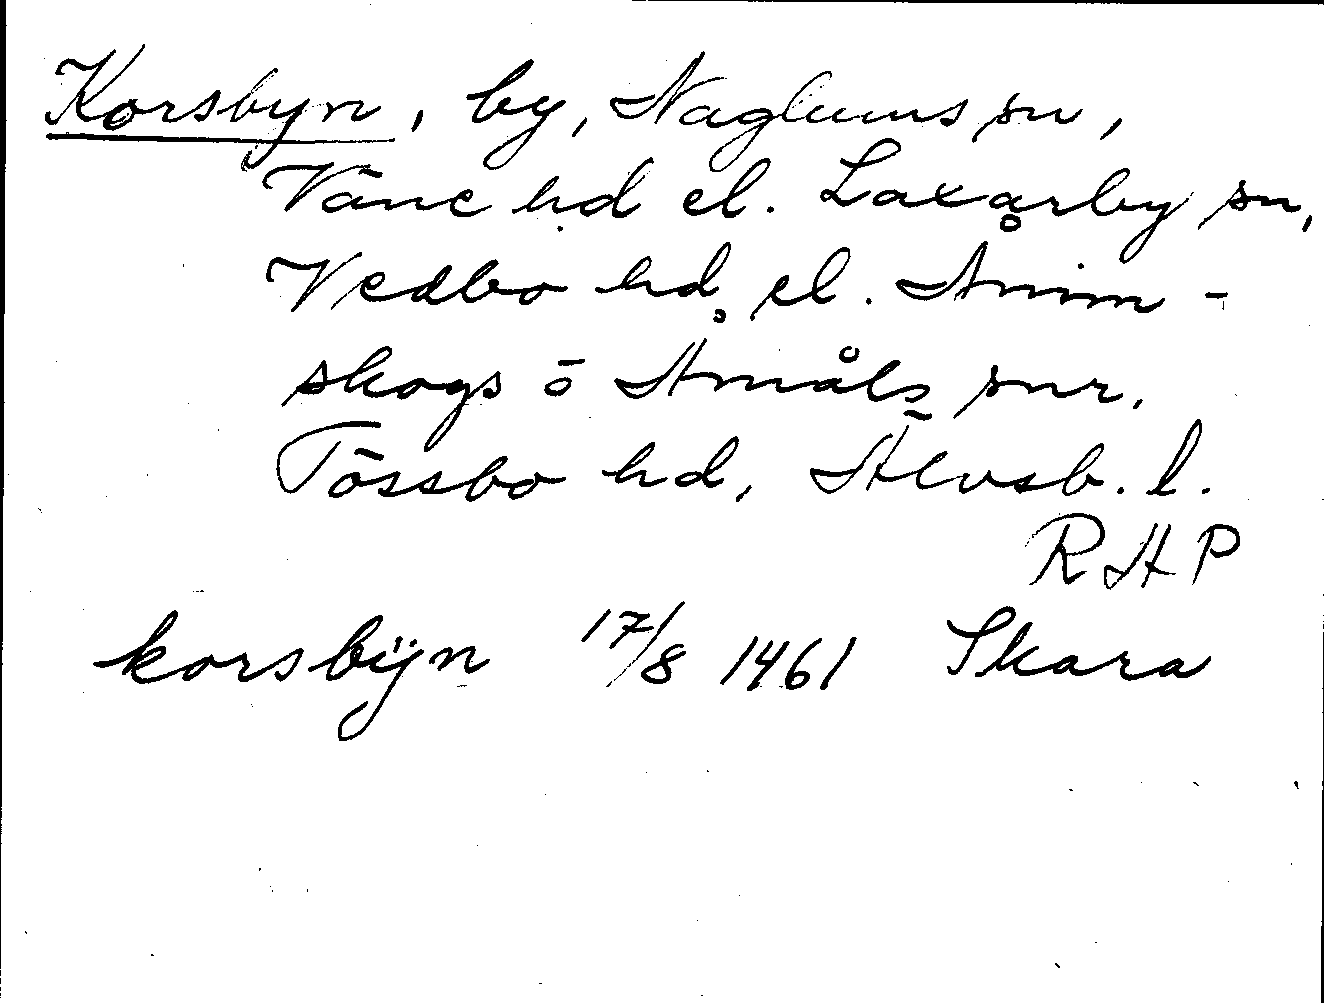 Korsbyn, by, Naglums sn,
Väne hd el. Laxarby sn,
Vedbo hd el. Ånim-
skogs o Åmåls snr,
Tössbo hd, Älvsb. l.
RHP
korsbÿn 17/8 1461 Skara